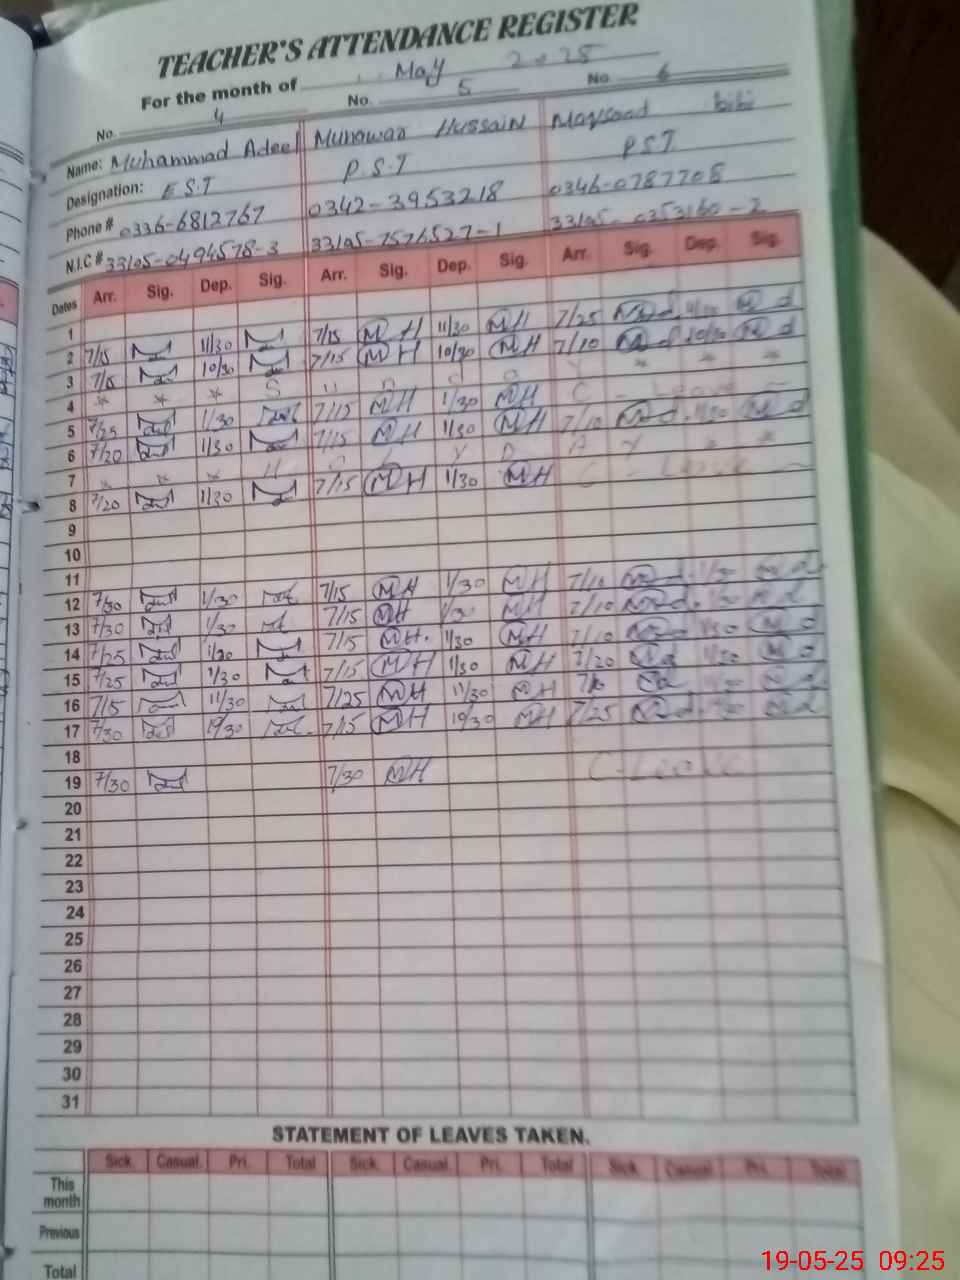 TEACHER'S ATTENDANCE REGISTER
For the month of May 2025
No. 4 No. 5 No. 6
Name: Muhammad Adeel Munawaa Hussain Maqsood bibi
Designation: E.S.T P.S.T P.S.T
Phone # 0336-6812767 0342-3953218 0346-0787708
N.I.C # 33105-0494578-3 33105-7576527-1 33105-0353160-2
Dates Arr. Sig. Dep. Sig. Arr. Sig. Dep. Sig. Arr. Sig. Dep. Sig.
1
2 7/15 11/30 7/15 MH 11/30 MH 7/25 d 11/30 M d
3 7/15 10/30 7/15 MH 10/30 MH 7/10 d 10/30 M d
4 * * * S U N D A Y * * *
5 7/25 1/30 7/15 MH 1/30 MH C - Leave -
6 7/20 1/30 7/15 MH 1/30 MH 7/10 d 1/30 M d
7 * * * H O L Y D A Y * *
8 7/20 1/30 7/15 MH 1/30 MH C - Leave -
9
10
11
12 7/30 1/30 7/15 MH 1/30 MH 7/10 d 1/30 M d
13 7/30 1/30 7/15 MH 1/30 MH 7/10 d 1/30 M d
14 7/25 1/30 7/15 MH. 1/30 MH 7/10 d 1/30 M d
15 7/25 1/30 7/15 MH 1/30 MH 7/20 M d 1/30 M d
16 7/15 11/30 7/25 MH 11/30 MH d 11/30 M d
17 7/30 10/30 7/15 MH 10/30 MH 7/25 d M d
18
19 7/30 7/30 MH C-Leave
20
21
22
23
24
25
26
27
28
29
30
31
STATEMENT OF LEAVES TAKEN.
Sick Casual Pri. Total Sick Casual Pri. Total Sick Casual Pri. Total
This month
Previous
Total
19-05-25 09:25